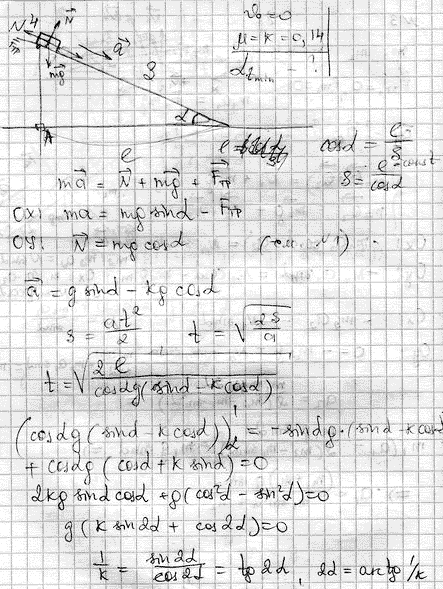 v₀ = 0
μ = k = 0,14
α t min - ?
N⃗
a⃗
mg⃗
S
α
A
l
cosα = l/S
S = l/cosα
l - const
ma⃗ = N⃗ + mg⃗ + F⃗тр
OX: ma = mg sinα - Fтр
OY: N⃗ = mg cosα
a⃗ = g sinα - kg cosα
S = at²/2 t = √(2S/a)
t = √(2l/(cosα g(sinα - k cosα)))
(cosα g (sinα - k cosα))'α = - sinα g · (sinα - k cosα)
+ cosα g (cosα + k sinα) = 0
2kg sinα cosα + g(cos²α - sin²α) = 0
g (k sin2α + cos2α) = 0
1/k = sin2α/cos2α = tg 2α, 2α = arctg 1/k